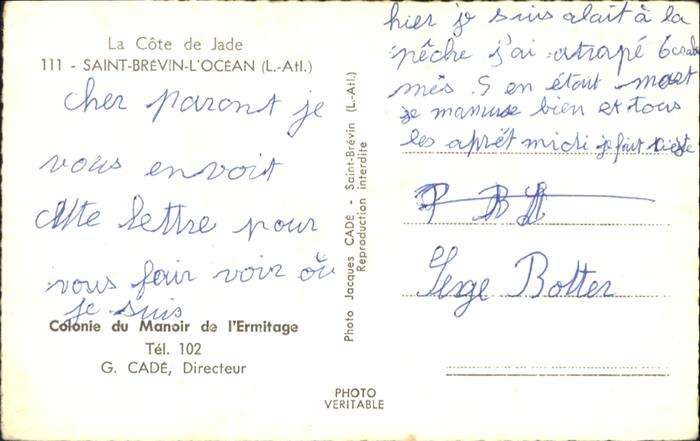 La Côte de Jade
111 - SAINT-BRÉVIN-L'OCÉAN (L.-Atl.)
cher paront je
vous envoit
cette lettre pour
vous fair voir où
je suis
Colonie du Manoir de l'Ermitage
Tél. 102
G. CADÉ, Directeur
Photo Jacques CADÉ - Saint-Brévin (L.-Atl.)
Reproduction interdite
PHOTO
VERITABLE
hier je suis alait à la
pêche j'ai atrapé 6 crabe
mês. 5 en étaut mort
je mamuse bien et tous
les aprét midi je fait sieste
Serge Botter